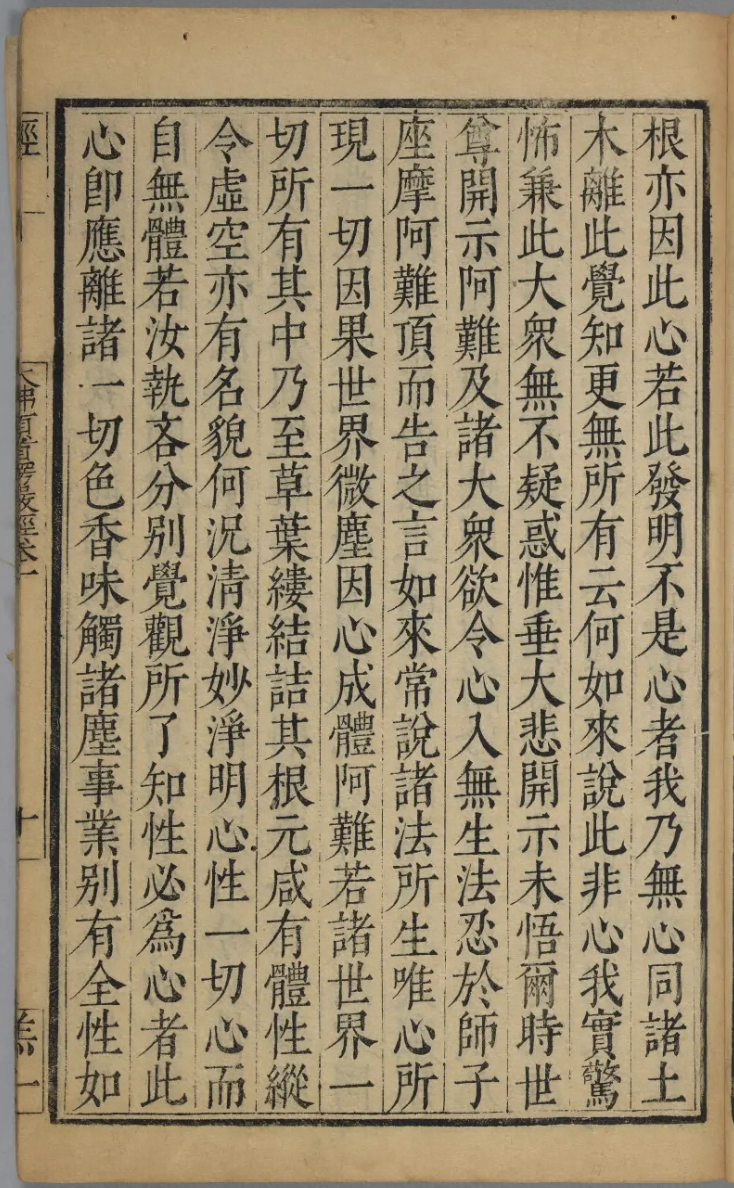 根亦因此心若此發明不是心者我乃無心同諸土
木離此覺知更無所有云何如來說此非心我實驚
怖兼此大衆無不疑惑惟垂大悲開示未悟爾時世
尊開示阿難及諸大衆欲令心入無生法忍於師子
座摩阿難頂而告之言如來常說諸法所生唯心所
現一切因果世界微塵因心成體阿難若諸世界一
切所有其中乃至草葉縷結詰其根元咸有體性縱
令虛空亦有名貌何況清淨妙淨明心性一切心而
自無體若汝執吝分別覺觀所了知性必爲心者此
心卽應離諸一切色香味觸諸塵事業別有全性如
經
大佛頂首楞嚴經卷一
十